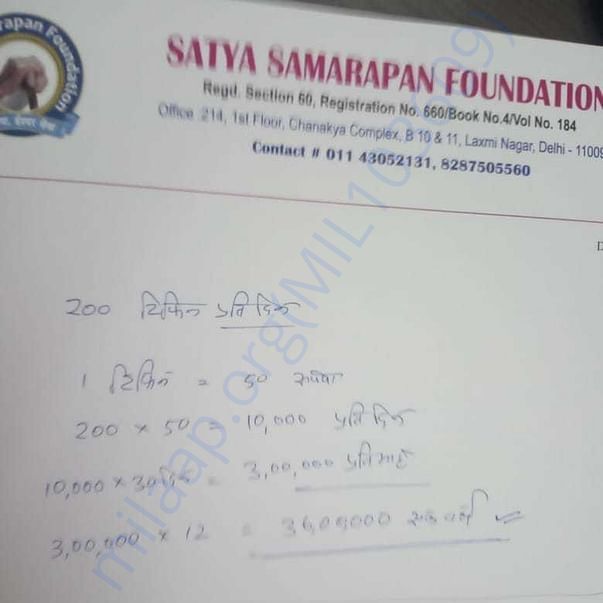 rapan Foundation
SATYA SAMARAPAN FOUNDATION
Regd. Section 60, Registration No. 660/Book No.4/Vol No. 184
Office :214, 1st Floor, Chanakya Complex, B 10 & 11, Laxmi Nagar, Delhi - 11009
Contact # 011 43052131, 8287505560
D
200 टिफिन प्रति दिन
1 टिफिन = 50 रुपया
200 × 50 = 10,000 प्रति दिन
10,000 × 30 दिन = 3,00,000 प्रति माह
3,00,000 × 12 = 3600000 एक वर्ष
milaap.org(MIL103669)